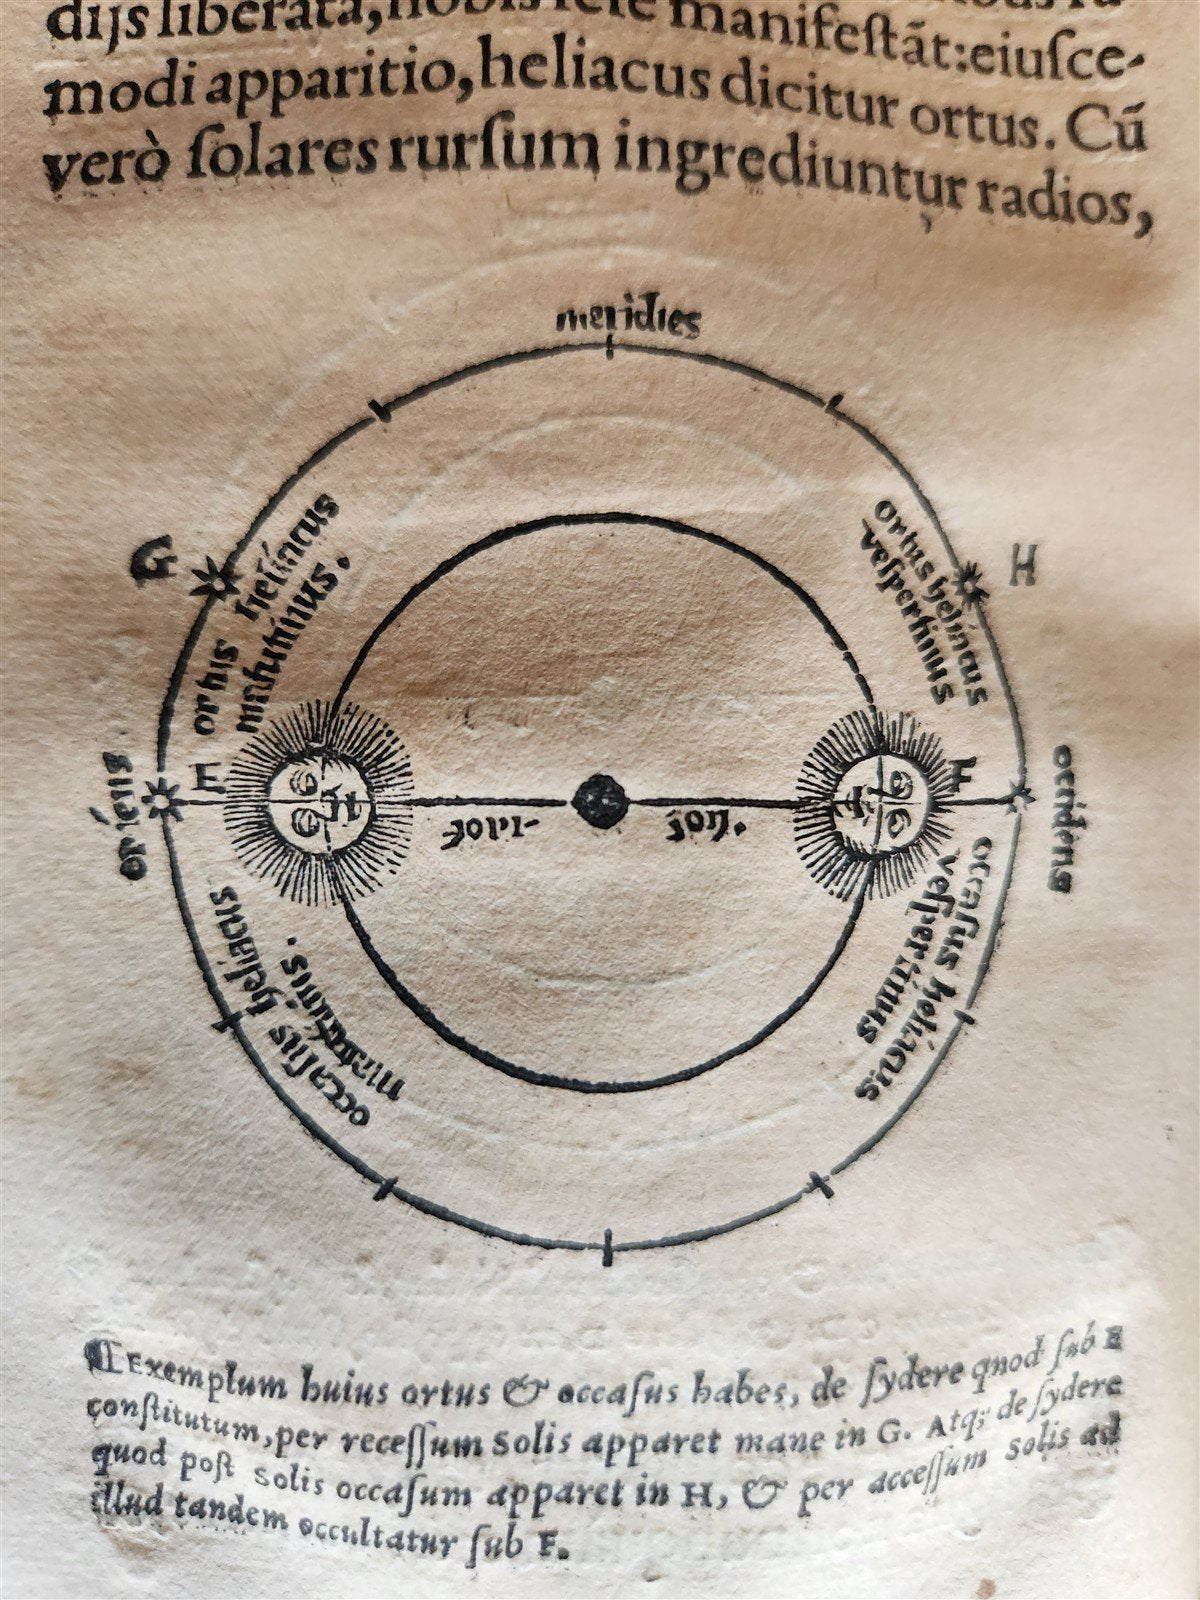 dijs liberata, nobis sese manifestãt: eiusce-
modi apparitio, heliacus dicitur ortus. Cũ
verò ſolares rurſum ingrediuntur radios,
meridies
G
H
ortus heliacus
matutinus.
ortus heliacus
veſpertinus
oriens
E
F
occidens
occaſus heliacus
matutinus.
occaſus heliacus
veſpertinus
¶Exemplum huius ortus & occaſus habes, de ſydere quod ſub E
conſtitutum, per receſſum Solis apparet mane in G. Atq; de ſydere
quod poſt Solis occaſum apparet in H, & per acceſſum Solis ad
illud tandem occultatur ſub F.